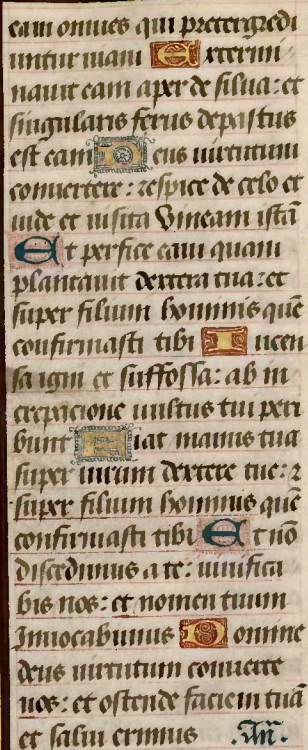 eam omnes qui pretergredi
untur uiam Extermi
nauit eam aper de silua: et
singularis ferus depastus
est eam Deus uirtutum
conuertere: respice de celo et
uide et uisita Vineam istā
Et perfice eam quam
plantauit dextera tua: et
super filium hominis quē
confirmasti tibi Incen
sa igni et suffossa: ab in
crepacione uultus tui peri
bunt Fiat manus tua
super uirum dextere tue: ⁊
super filium hominis quē
confirmasti tibi Et nō
discedimus a te: uiuifica
bis nos: et nomen tuum
Inuocabimus Domine
deus uirtutum conuerte
nos: et ostende faciem tuā
et salui erimus Añ.